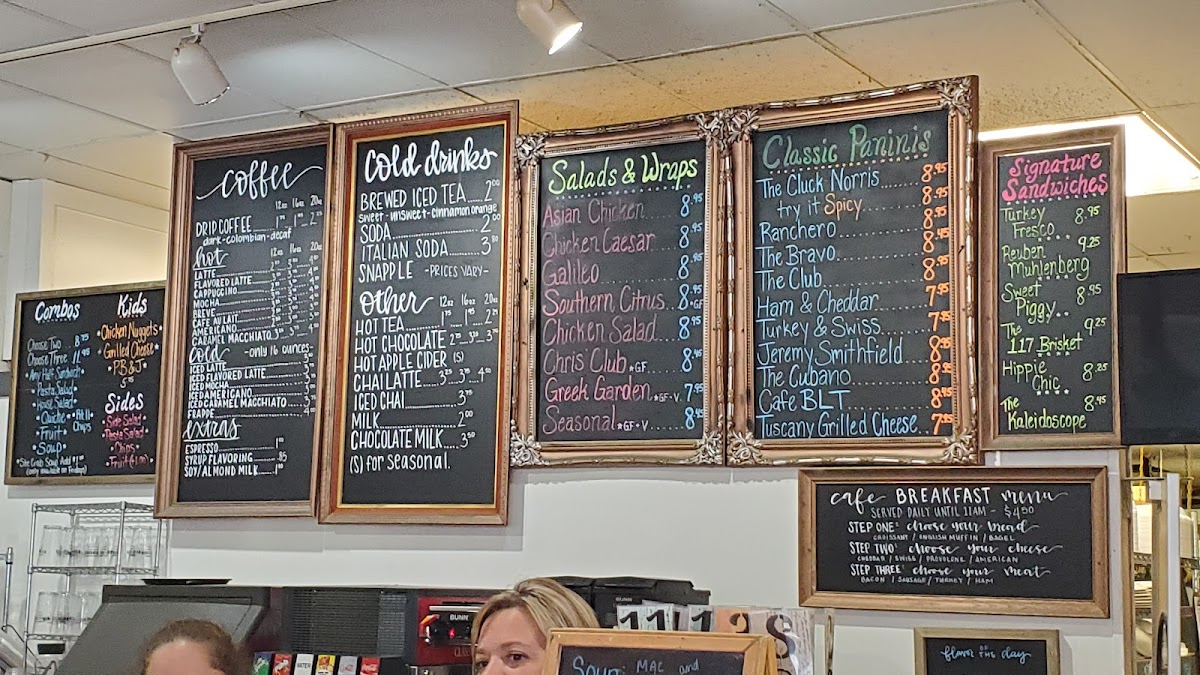 Combos
Choose Two 8.75
Choose Three 11.95
• Any Half Sandwich
• Pasta Salad
• House Salad
• Quiche
• Fruit •
• Soup •
Kids
• Chicken Nuggets •
• Grilled Cheese •
• PB & J •
5.75
Sides
• Side Salad
• Pasta Salad
• Chips •
coffee
12oz 16oz 20oz
DRIP COFFEE
dark-colombian-decaf
hot 12oz 16oz 20oz
LATTE
FLAVORED LATTE
CAPPUCCINO
MOCHA
BREVE
CAFE AU LAIT
AMERICANO
CARAMEL MACCHIATO
cold -only 16 ounces-
ICED LATTE
ICED FLAVORED LATTE
ICED MOCHA
ICED AMERICANO
ICED CARAMEL MACCHIATO
FRAPPE
extras
ESPRESSO
SYRUP FLAVORING .85
SOY/ALMOND MILK
cold drinks
BREWED ICED TEA 2.00
sweet-unsweet-cinnamon orange
SODA 2.00
ITALIAN SODA 3.50
SNAPPLE -PRICES VARY-
other 12oz 16oz 20oz
HOT TEA
HOT CHOCOLATE
HOT APPLE CIDER (S)
CHAI LATTE
ICED CHAI 3.75
MILK 2.00
CHOCOLATE MILK 3.50
(S) for seasonal.
Salads & Wraps
Asian Chicken 8.95
Chicken Caesar 8.95
Galileo 8.95
Southern Citrus 8.95 •GF
Chicken Salad 8.95
Chris' Club •GF 8.95
Greek Garden •GF•V 7.95
Seasonal •GF•V 8.95
Classic Paninis
The Cluck Norris 8.95
try it Spicy 8.95
Ranchero 8.95
The Bravo 8.95
The Club 8.95
Ham & Cheddar 7.95
Turkey & Swiss 7.95
Jeremy Smithfield 8.95
The Cubano 8.95
Cafe BLT 8.95
Tuscany Grilled Cheese 7.95
Signature
Sandwiches
Turkey
Fresco 8.95
Reuben 9.25
Muhlenberg
Sweet
Piggy 8.95
The 9.25
117 Brisket
Hippie
Chic 8.25
The 8.95
Kaleidoscope
cafe BREAKFAST menu
SERVED DAILY UNTIL 11AM - $4.50
STEP ONE: choose your bread
CROISSANT / ENGLISH MUFFIN / BAGEL
STEP TWO: choose your cheese
CHEDDAR / SWISS / PROVOLONE / AMERICAN
STEP THREE: choose your meat
BACON / SAUSAGE / TURKEY / HAM
flavor OF THE day
BUNN
Soup: MAC and